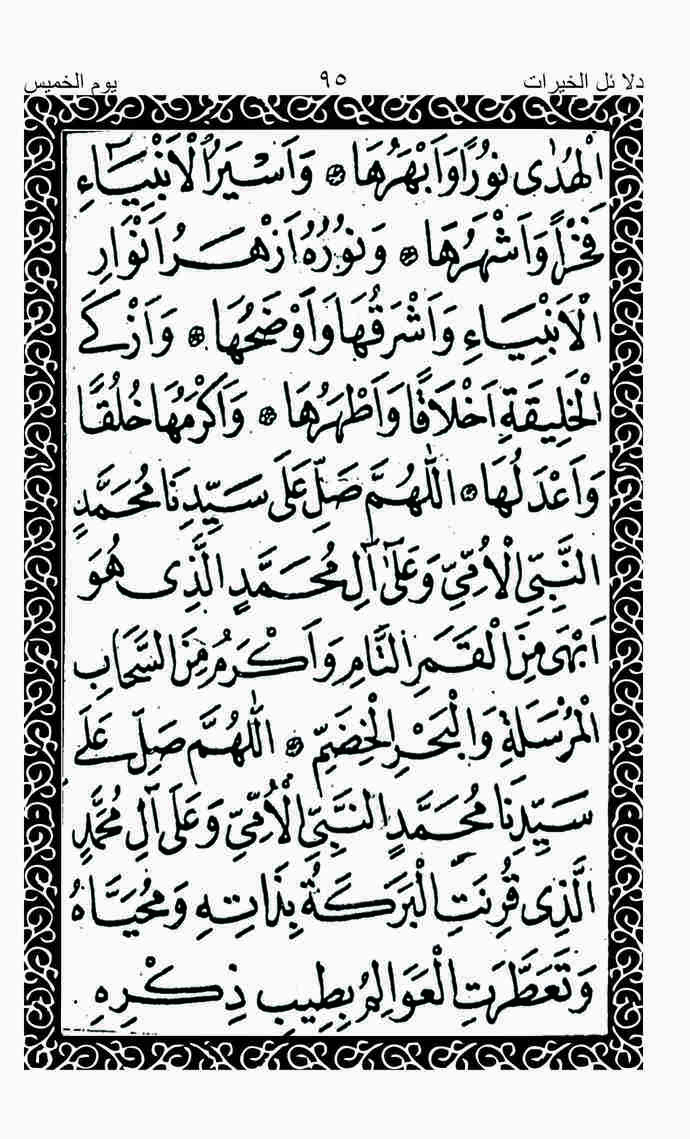 دلائل الخيرات ٩٥ يوم الخميس
الْهُدٰى نُوْرًا وَاَبْهَرُهَا ۞ وَاَسْيَرُ الْاَنْبِيَآءِ
فَخْرًا وَاَشْهَرُهَا ۞ وَنُوْرُهُ اَزْهَرُ اَنْوَارِ
الْاَنْبِيَاءِ وَاَشْرَقُهَا وَاَوْضَحُهَا ۞ وَاَزْكَے
الْخَلِيْقَةِ اَخْلَاقًا وَاَطْهَرُهَا ۞ وَاَكْرَمُهَا خُلُقًا
وَاَعْدَلُهَا ۞ اَللّٰهُمَّ صَلِّ عَلَى سَيِّدِنَا مُحَمَّدٍ
النَّبِيِّ الْاُمِّيِّ وَعَلٰٓى اٰلِ مُحَمَّدٍ الَّذِى هُوَ
اَبْهَى مِنَ الْقَمَرِ التَّامِ وَاَكْرَمُ مِنَ السَّحَابِ
الْمُرْسَلَةِ وَالْبَحْرِ الْخِضَمِّ ۞ اَللّٰهُمَّ صَلِّ عَلَے
سَيِّدِنَا مُحَمَّدٍ النَّبِيِّ الْاُمِّيِّ وَعَلَى آلِ مُحَمَّدٍ
الَّذِى قُرِنَتِ الْبَرَكَةُ بِذَاتِهِ وَمُحَيَّاهُ
وَتَعَطَّرَتِ الْعَوَالِمُ بِطِيْبِ ذِكْرِهِ